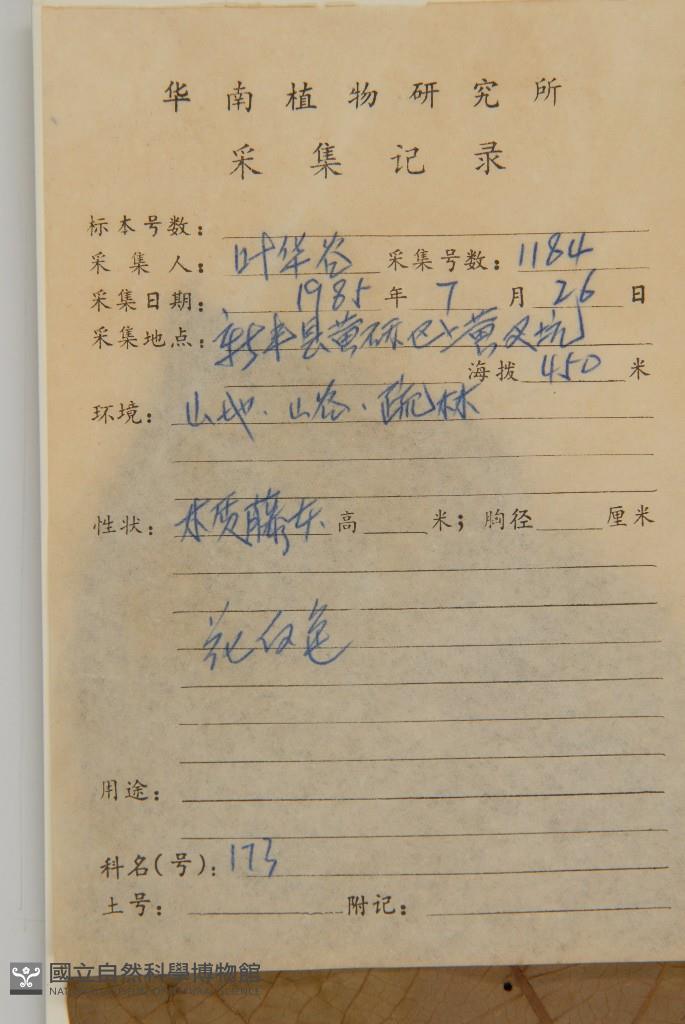 华南植物研究所
采集记录
标本号数：
采集人：叶华谷 采集号数：1184
采集日期：1985年7月26日
采集地点：新丰县黄磜区上黄叉坑
海拨 450 米
环境：山地．山谷．疏林
性状：木质藤本．高 米；胸径 厘米
花红色
用途：
科名(号)：173
土号： 附记：
國立自然科學博物館
NATIONAL MUSEUM OF NATURAL SCIENCE